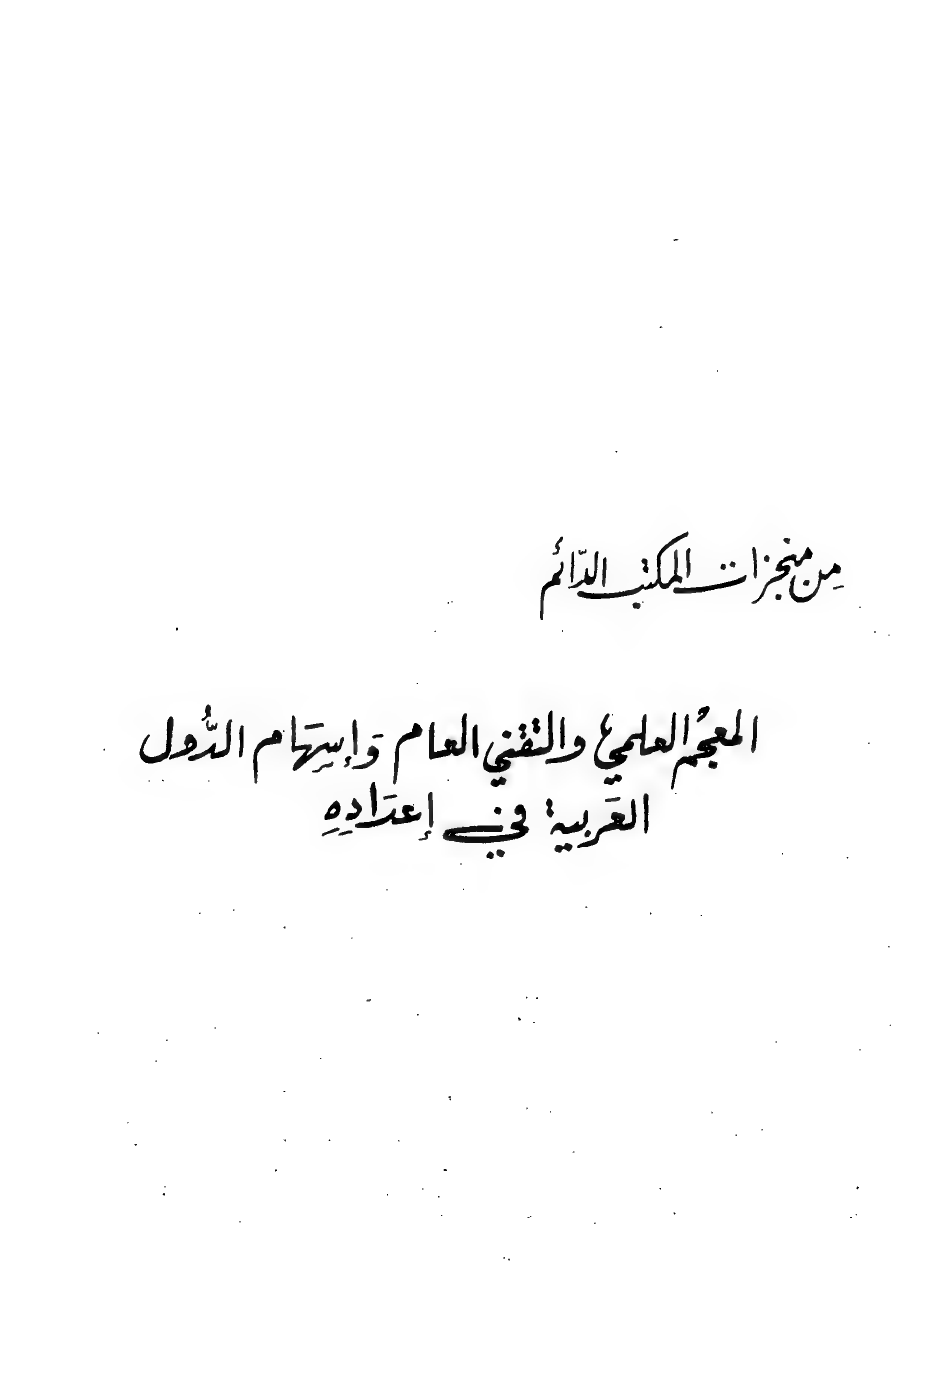 مِن منجزات المكتب الدّائم
المعجْم العلميّ والتقني العام وَإسِهَام الدُّول
العَربية في إعدَادِهِ